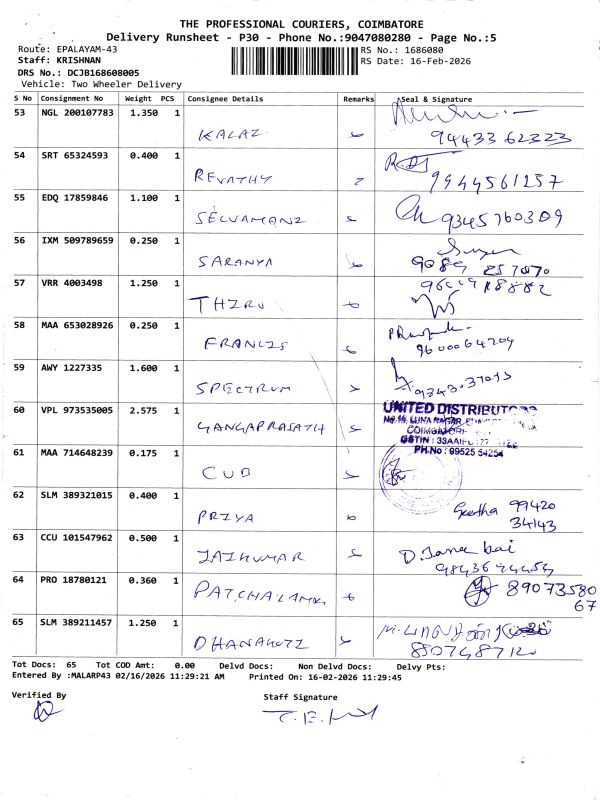 THE PROFESSIONAL COURIERS, COIMBATORE
Delivery Runsheet - P30 - Phone No.:9047080280 - Page No.:5
Route: EPALAYAM-43 RS No.: 1686080
Staff: KRISHNAN RS Date: 16-Feb-2026
DRS No.: DCJB168608005
Vehicle: Two Wheeler Delivery
S No Consignment No Weight PCS Consignee Details Remarks Seal & Signature
53 NGL 200107783 1.350 1 KALAI 94433 62323
54 SRT 65324593 0.400 1 REVATHY 9944561257
55 EDQ 17859846 1.100 1 SELVAMANI 9345760309
56 IXM 509789659 0.250 1 SARANYA
57 VRR 4003498 1.250 1 THIRU
58 MAA 653028926 0.250 1 FRANCIS 9600064204
59 AWY 1227335 1.600 1 SPECTRUM
60 VPL 973535005 2.575 1 GANGAPRASATH UNITED DISTRIBUTORS
COIMBATORE
PH.No: 99525 54254
61 MAA 714648239 0.175 1 CUB
62 SLM 389321015 0.400 1 PRIYA Geetha 99420
34143
63 CCU 101547962 0.500 1 JAIKUMAR D. Jana bai
64 PRO 18780121 0.360 1 89073580
67
65 SLM 389211457 1.250 1
Tot Docs: 65 Tot COD Amt: 0.00 Delvd Docs: Non Delvd Docs: Delvy Pts:
Entered By :MALARP43 02/16/2026 11:29:21 AM Printed On: 16-02-2026 11:29:45
Verified By Staff Signature